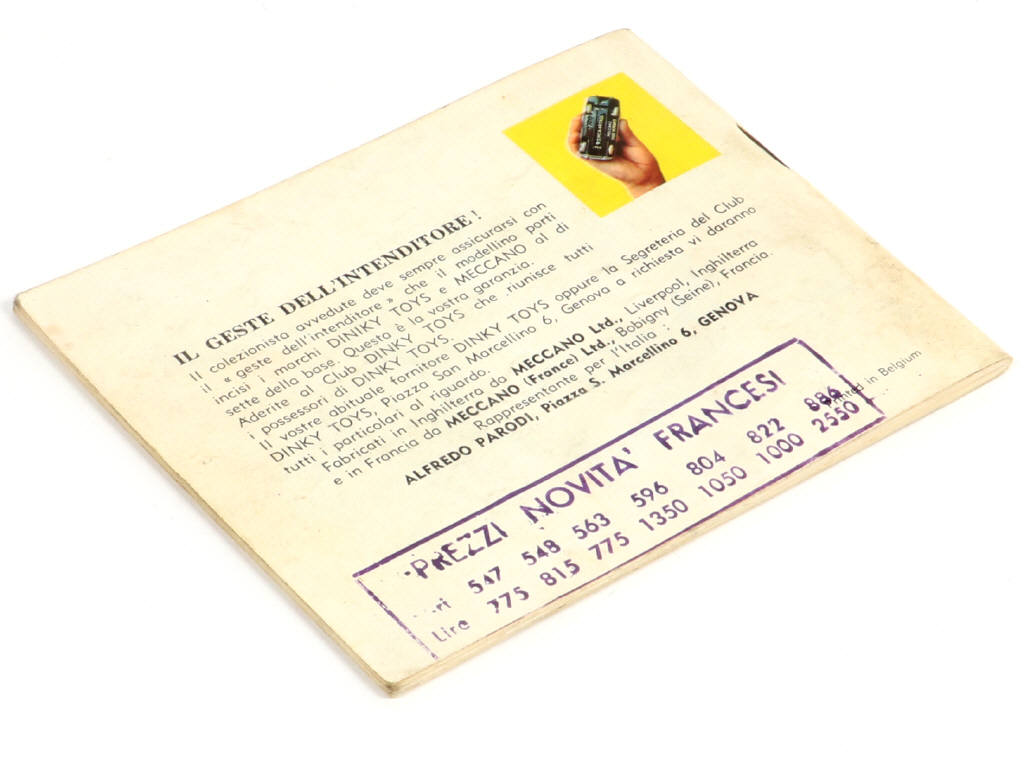 IL GESTE DELL'INTENDITORE !
Il colezionista avvedute deve sempre assicurarsi con
il « geste dell'intenditore » che il modellino porti
incisi i marchi DINIKY TOYS e MECCANO al di
sette della base. Questa è la vostra garanzia.
Aderite al Club DINKY TOYS che riunisce tutti
i possessori di DINKY TOYS.
Il vostre abituale fornitore DINKY TOYS oppure la Segreteria del Club
DINKY TOYS, Piazza San Marcellino 6, Genova a richiesta vi daranno
tutti i particolari al riguardo.
Fabricati in Inghilterra da MECCANO Ltd., Liverpool, Inghilterra
e in Francia da MECCANO (France) Ltd., Bobigny (Seine), Francia.
Rappresentante per l'Italia :
ALFREDO PARODI, Piazza S. Marcellino 6, GENOVA
in Belgium
PREZZI NOVITA' FRANCESI
547 548 563 596 804 822 886
Lire 775 815 775 1350 1050 1000 2550